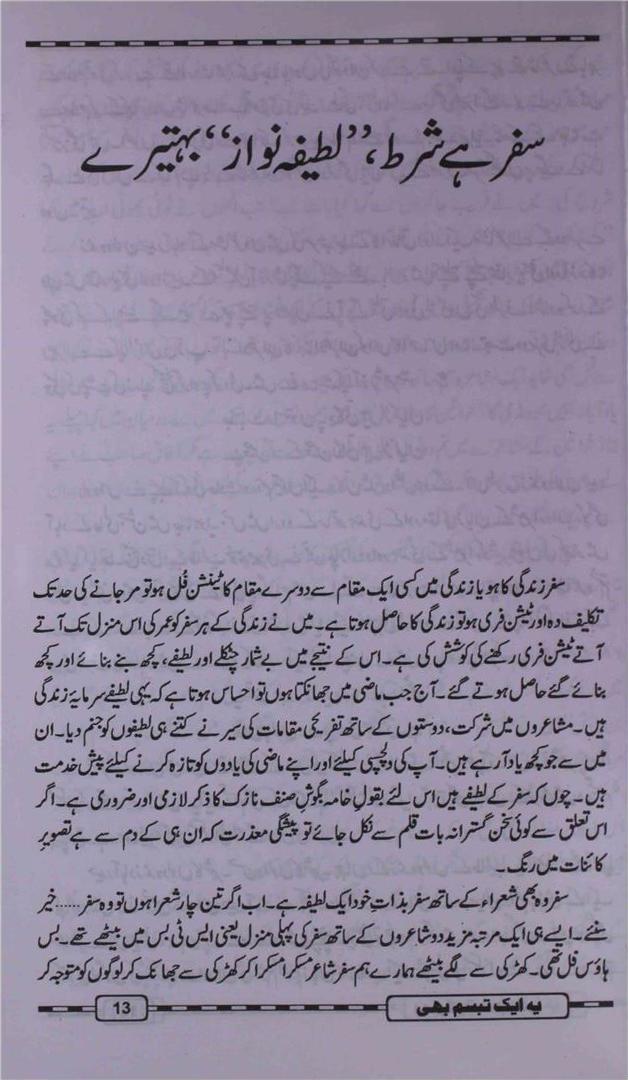 سفر ہے شرط، ”لطیفہ نواز“ بہتیرے
سفر زندگی کا ہو یا زندگی میں کسی ایک مقام سے دوسرے مقام کا ٹینشن فل ہو تو مر جانے کی حد تک
تکلیف دہ اور ٹینشن فری ہو تو زندگی کا حاصل ہوتا ہے۔ میں نے زندگی کے ہر سفر کو عمر کی اس منزل تک آتے
آتے ٹینشن فری رکھنے کی کوشش کی ہے۔ اس کے نتیجے میں بے شمار چٹکلے اور لطیفے، کچھ بنے بنائے اور کچھ
بنائے گئے حاصل ہوتے گئے۔ آج جب ماضی میں جھانکتا ہوں تو احساس ہوتا ہے کہ یہی لطیفے سرمایۂ زندگی
ہیں۔ مشاعروں میں شرکت، دوستوں کے ساتھ تفریحی مقامات کی سیر نے کتنے ہی لطیفوں کو جنم دیا۔ ان
میں سے جو کچھ یاد آرہے ہیں۔ آپ کی دلچسپی کیلئے اور اپنے ماضی کی یادوں کو تازہ کرنے کیلئے پیش خدمت
ہیں۔ چوں کہ سفر کے لطیفے ہیں اس لئے بقول خامہ بگوش صنف نازک کا ذکر لازمی اور ضروری ہے۔ اگر
اس تعلق سے کوئی سخن گسترانہ بات قلم سے نکل جائے تو پیشگی معذرت کہ ان ہی کے دم سے ہے تصویرِ
کائنات میں رنگ۔
سفر وہ بھی شعراء کے ساتھ سفر بذاتِ خود ایک لطیفہ ہے۔ اب اگر تین چار شعرا ہوں تو وہ سفر..... خیر
سنئے۔ ایسے ہی ایک مرتبہ مزید دو شاعروں کے ساتھ سفر کی پہلی منزل یعنی ایس ٹی بس میں بیٹھے تھے۔ بس
ہاؤس فل تھی۔ کھڑکی سے لگے بیٹھے ہمارے ہم سفر شاعر مسکرا مسکرا کر کھڑکی سے جھانک کر لوگوں کو متوجہ کر
یہ ایک تبسم بھی
13